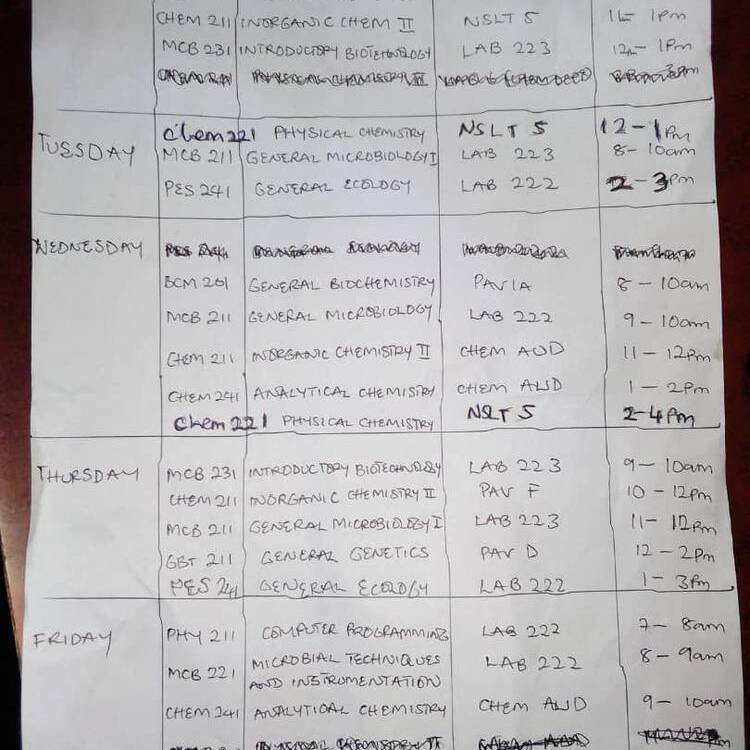 CHEM 211 INORGANIC CHEM II NSLT 5 11 - 1pm
MCB 231 INTRODUCTORY BIOTECHNOLOGY LAB 223 12 - 1pm
TUESDAY Chem 221 PHYSICAL CHEMISTRY NSLT 5 12 - 1pm
MCB 211 GENERAL MICROBIOLOGY I LAB 223 8 - 10am
PES 241 GENERAL ECOLOGY LAB 222 2 - 3pm
WEDNESDAY
BCM 201 GENERAL BIOCHEMISTRY PAV 1A 8 - 10am
MCB 211 GENERAL MICROBIOLOGY LAB 222 9 - 10am
CHEM 211 INORGANIC CHEMISTRY II CHEM AUD 11 - 12pm
CHEM 241 ANALYTICAL CHEMISTRY CHEM AUD 1 - 2pm
Chem 221 PHYSICAL CHEMISTRY NSLT 5 2-4pm
THURSDAY MCB 231 INTRODUCTORY BIOTECHNOLOGY LAB 223 9 - 10am
CHEM 211 INORGANIC CHEMISTRY II PAV F 10 - 12pm
MCB 211 GENERAL MICROBIOLOGY I LAB 223 11 - 12pm
GBT 211 GENERAL GENETICS PAV D 12 - 2pm
PES 241 GENERAL ECOLOGY LAB 222 1 - 3pm
FRIDAY PHY 211 COMPUTER PROGRAMMING LAB 222 7 - 8am
MCB 221 MICROBIAL TECHNIQUES LAB 222 8 - 9am
AND INSTRUMENTATION
CHEM 241 ANALYTICAL CHEMISTRY CHEM AUD 9 - 10am